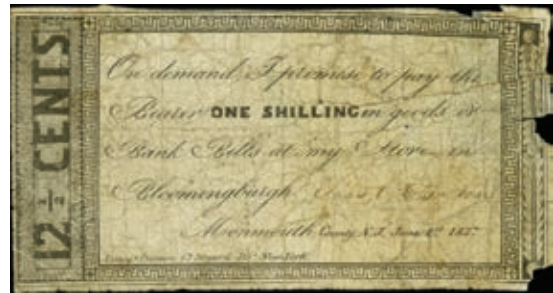 12 1/2 CENTS
On demand, I promise to pay the
Bearer ONE SHILLING in goods or
Bank Bills at my Store in
Bloomingburgh
Monmouth County N.J. June 1837